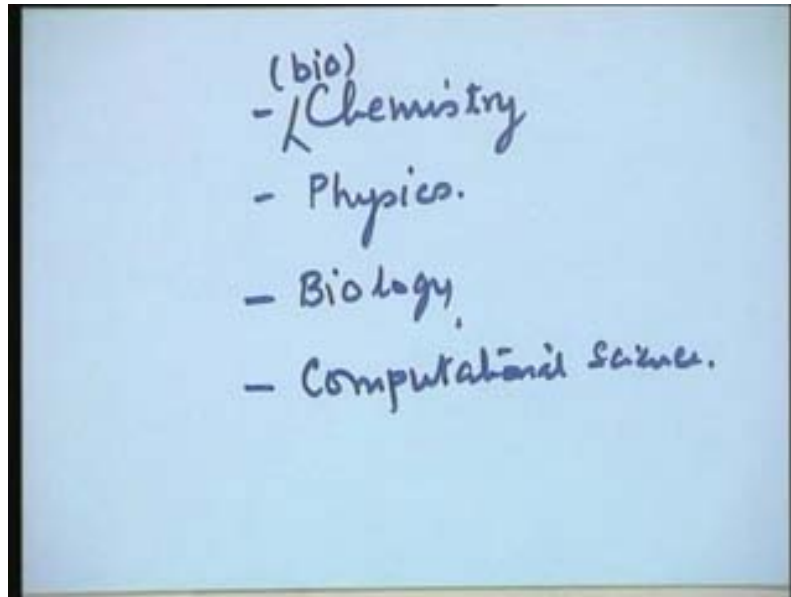 (bio)
- Chemistry
- Physics.
- Biology,
- Computational Science.